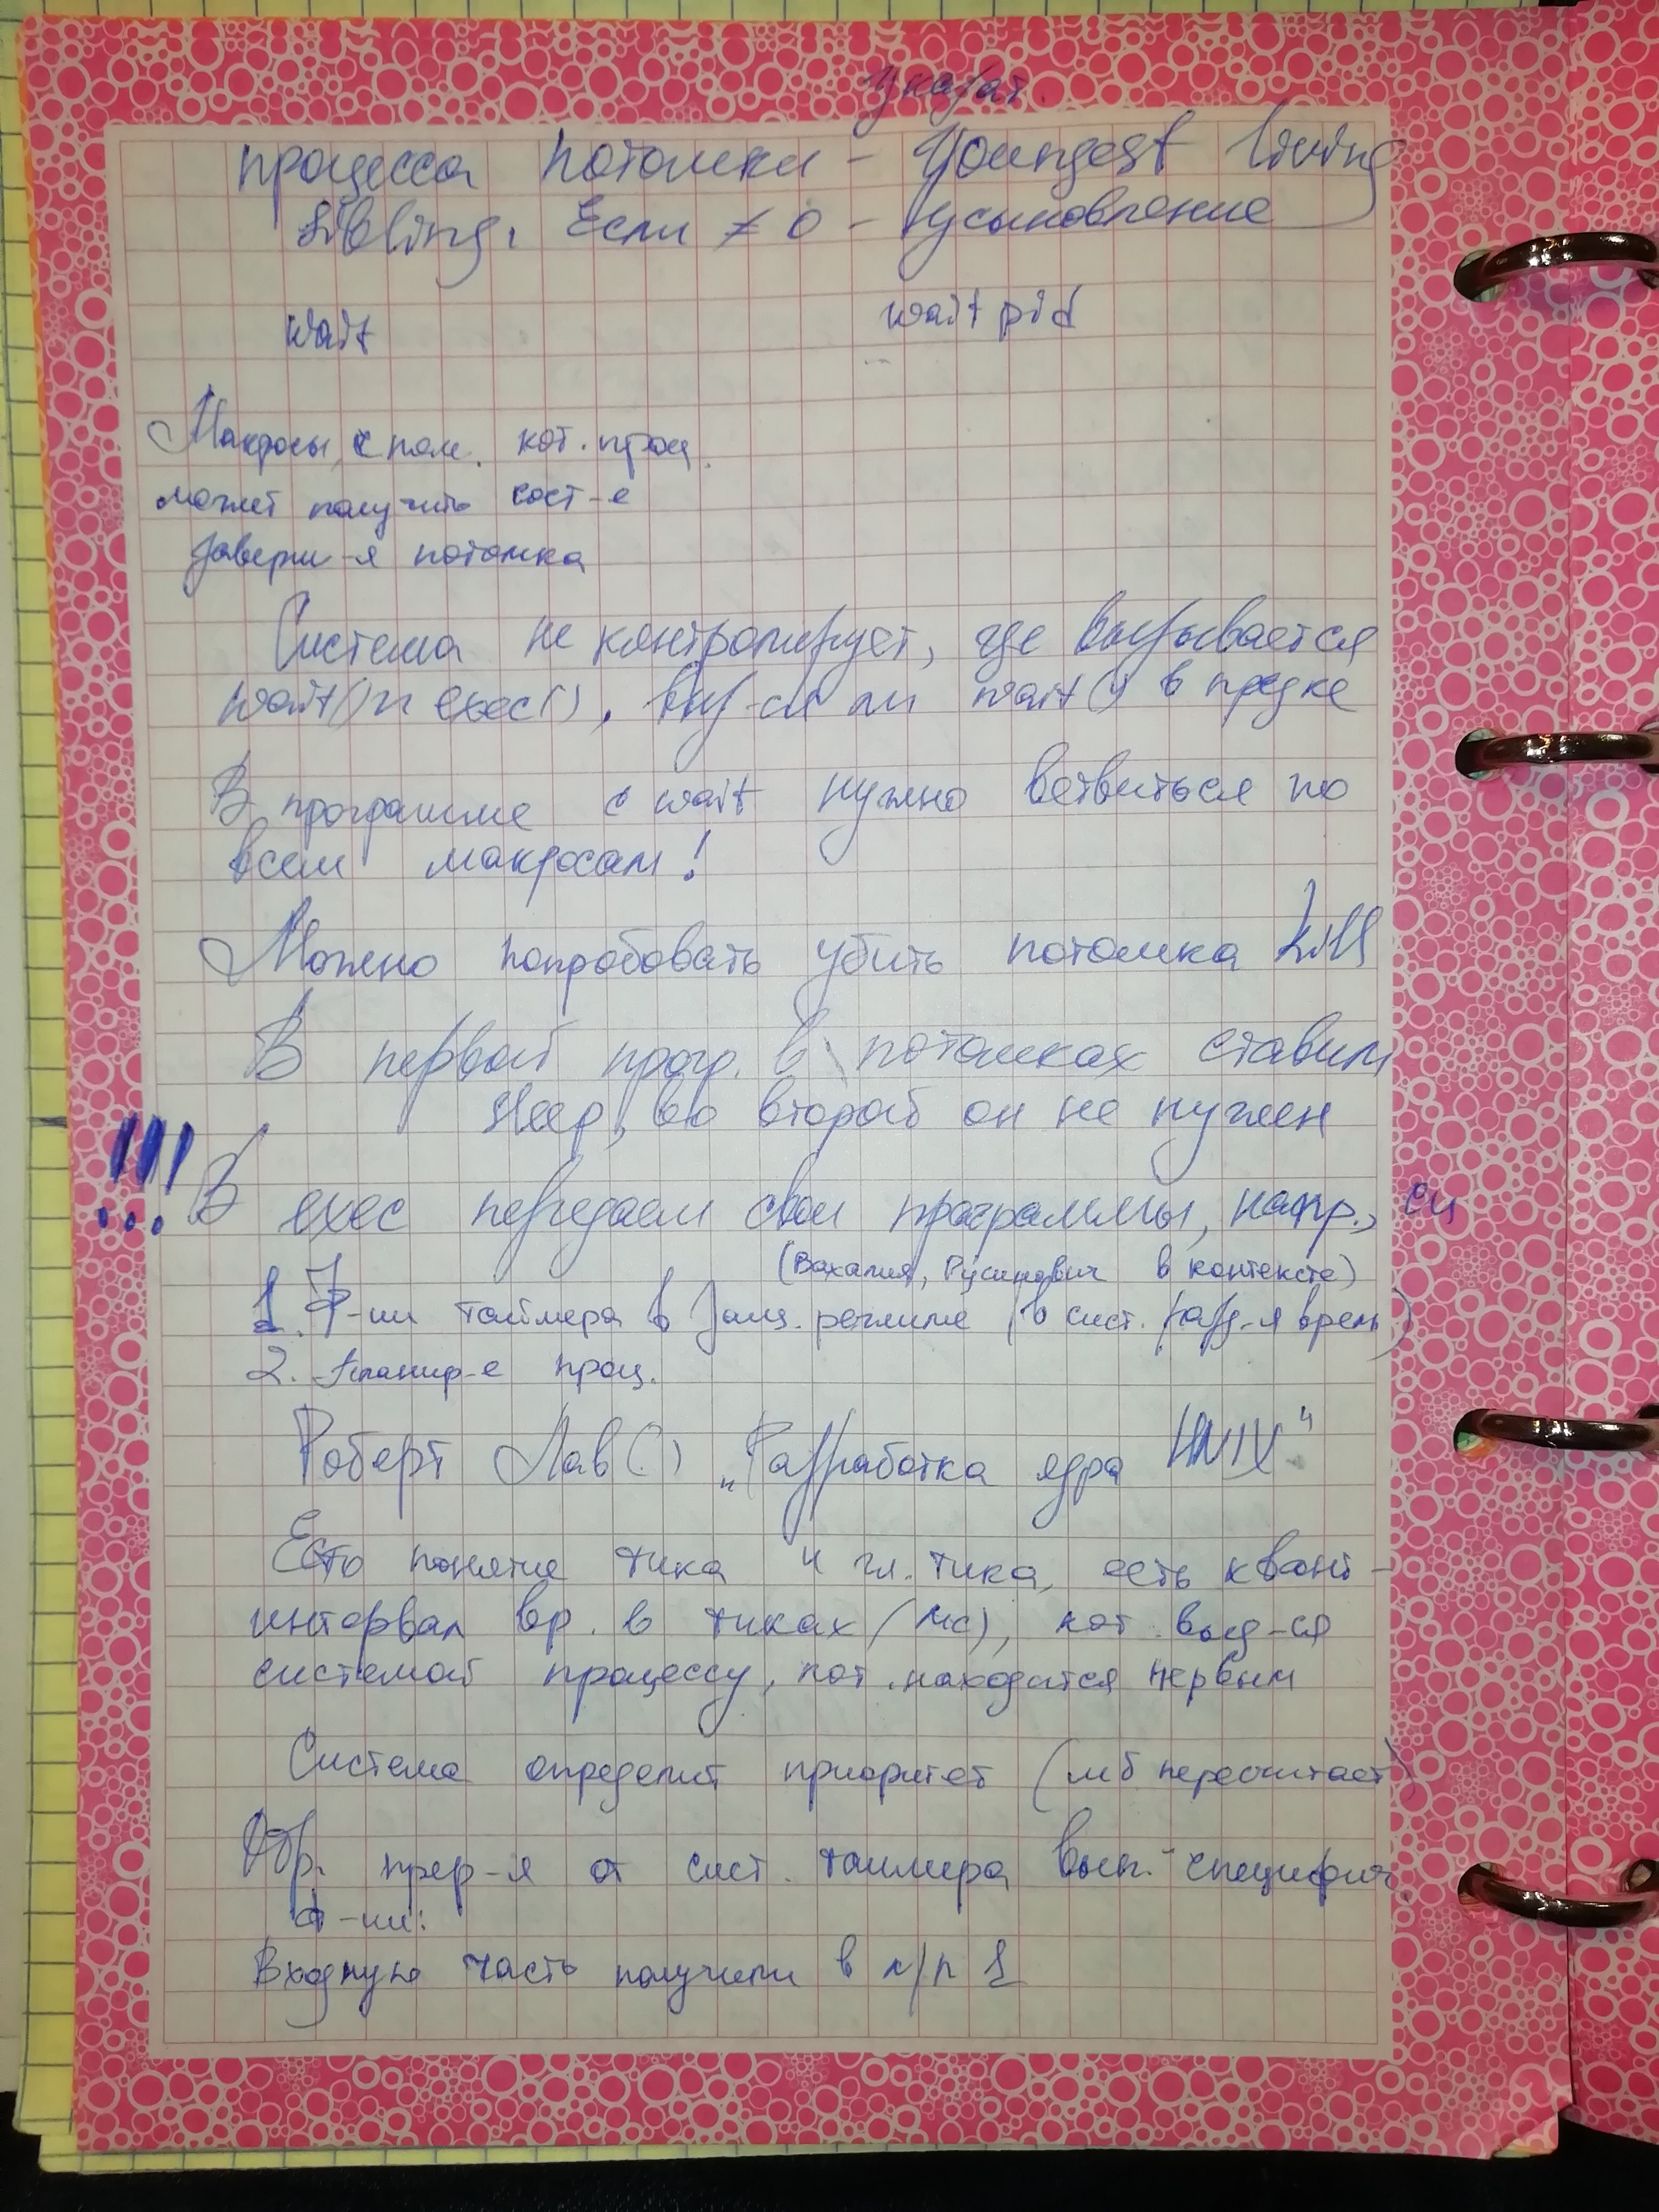 указат.
процесса потомки - Youngest living
sibling. Если ≠ 0 - усыновление
wait waitpid
Макросы, с пом. кот. проц.
может получить сост-е
заверш-я потомка
Система не контролирует, где вызывается
wait() и exec(), выз-ся ли wait() в предке
В программе с wait нужно ветвиться по
всем макросам!
Можно попробовать убить потомка kill
В первой прогр. в потомках ставим
sleep, во второй он не нужен
!!! В exec передаем свои программы, напр.,
(Вахалия, Русинович в контексте)
1. Ф-ии таймера в защ. режиме (в сист. разд-я врем.)
2. Планир-е проц.
Роберт Лав() „Разработка ядра UNIX“
Есть понятие тика и гл. тика, есть квант -
интервал вр. в тиках (мс), кот. выд-ся
системой процессу, кот. находится первым
Система определит приоритет (мб пересчитает)
Обр. прер-я от сист. таймера вып. специфич.
ф-ии:
Входную часть получили в л/р 1